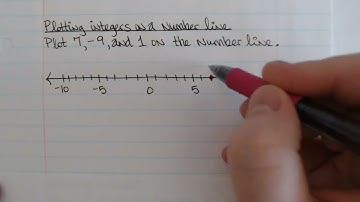 Plotting integers on a Number line
Plot 7, -9, and 1 on the Number line.
-10 -5 0 5